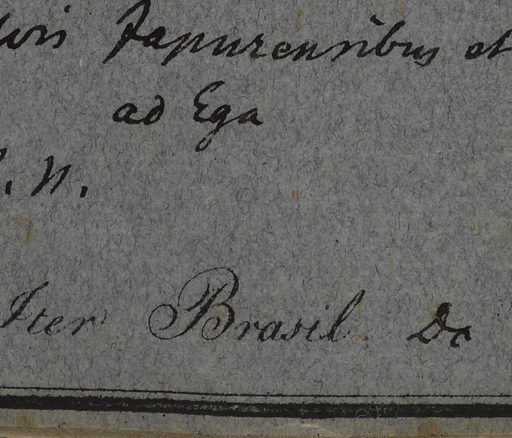 Japurensibus et
ad Ega
. N.
Iter Brasil. Dc